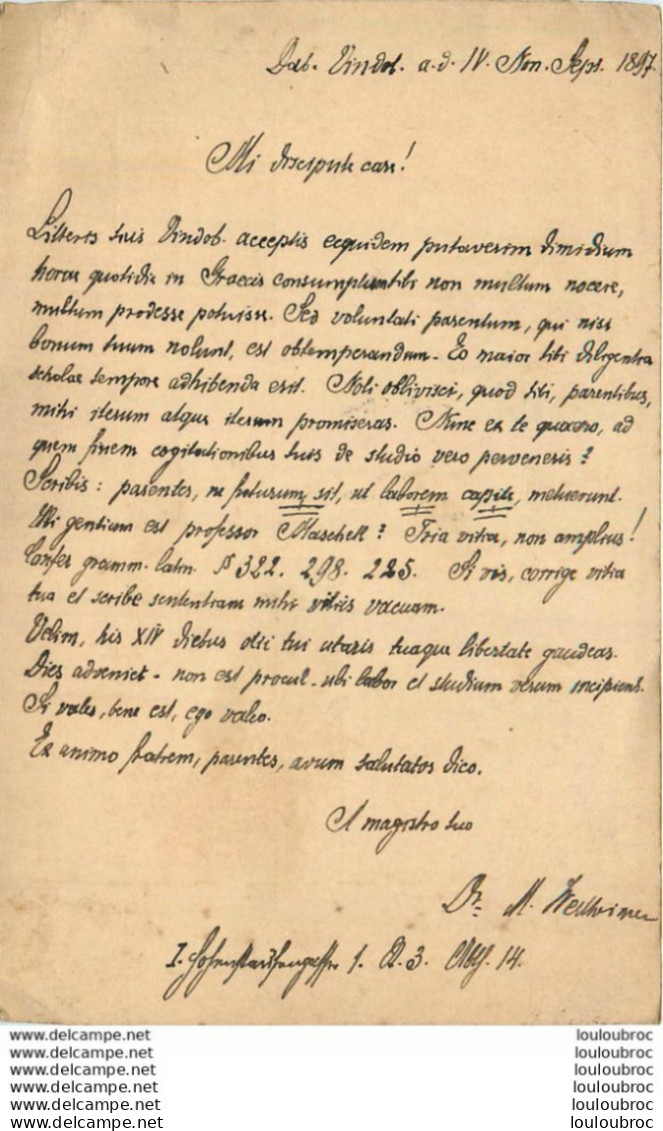 Dab. Vindob. a. d. IV. Non. Sept. 1897.
Mi discipule care!
Litteris tuis Vindob. acceptis equidem putaverim dimidium
horae quotidie in Graecis consumptum tibi non multum nocere,
multum prodesse potuisse. Sed voluntati parentum, qui nisi
bonum tuum nolunt, est obtemperandum. Eo maior tibi diligentia
scholae tempore adhibenda erit. Noli oblivisci, quod tibi, parentibus,
mihi iterum atque iterum promiseras. Nunc ex te quaero, ad
quem finem cogitationibus tuis de studio vero perveneris?
Scribis: parentes, ne futurum sit, ut laborem capite, metuerunt.
Ubi gentium est professor Maschek? Tria vitia, non amplius!
Confer gramm. latin. § 322. 298. 225. Si vis, corrige vitia
tua et scribe sententiam mihi vitiis vacuam.
Velim, his XIV diebus otii tui utaris tuaque libertate gaudeas.
Dies adveniet - non est procul - ubi labor et studium verum incipient.
Si vales, bene est, ego valeo.
Ex animo fratrem, parentes, avum salutatos dico.
A magistro tuo
Dr. M.
I. Hohenstaufengasse 1. 3. 14.
www.delcampe.net louloubroc
www.delcampe.net louloubroc
www.delcampe.net louloubroc
www.delcampe.net louloubroc
www.delcampe.net louloubroc
www.delcampe.net louloubroc